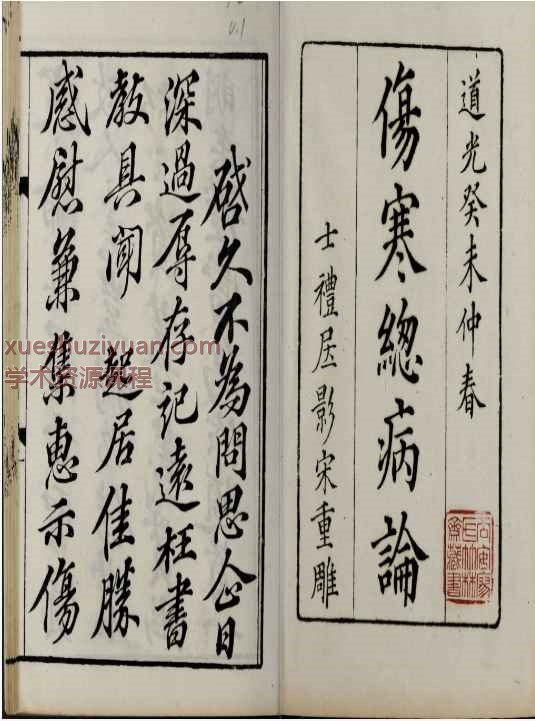 道光癸未仲春
傷寒總病論
士禮居影宋重雕
啓久不為問思企日
深過辱存記遠枉書
教具聞 起居佳勝
感慰兼集惠示傷
xueshuziyuan.com